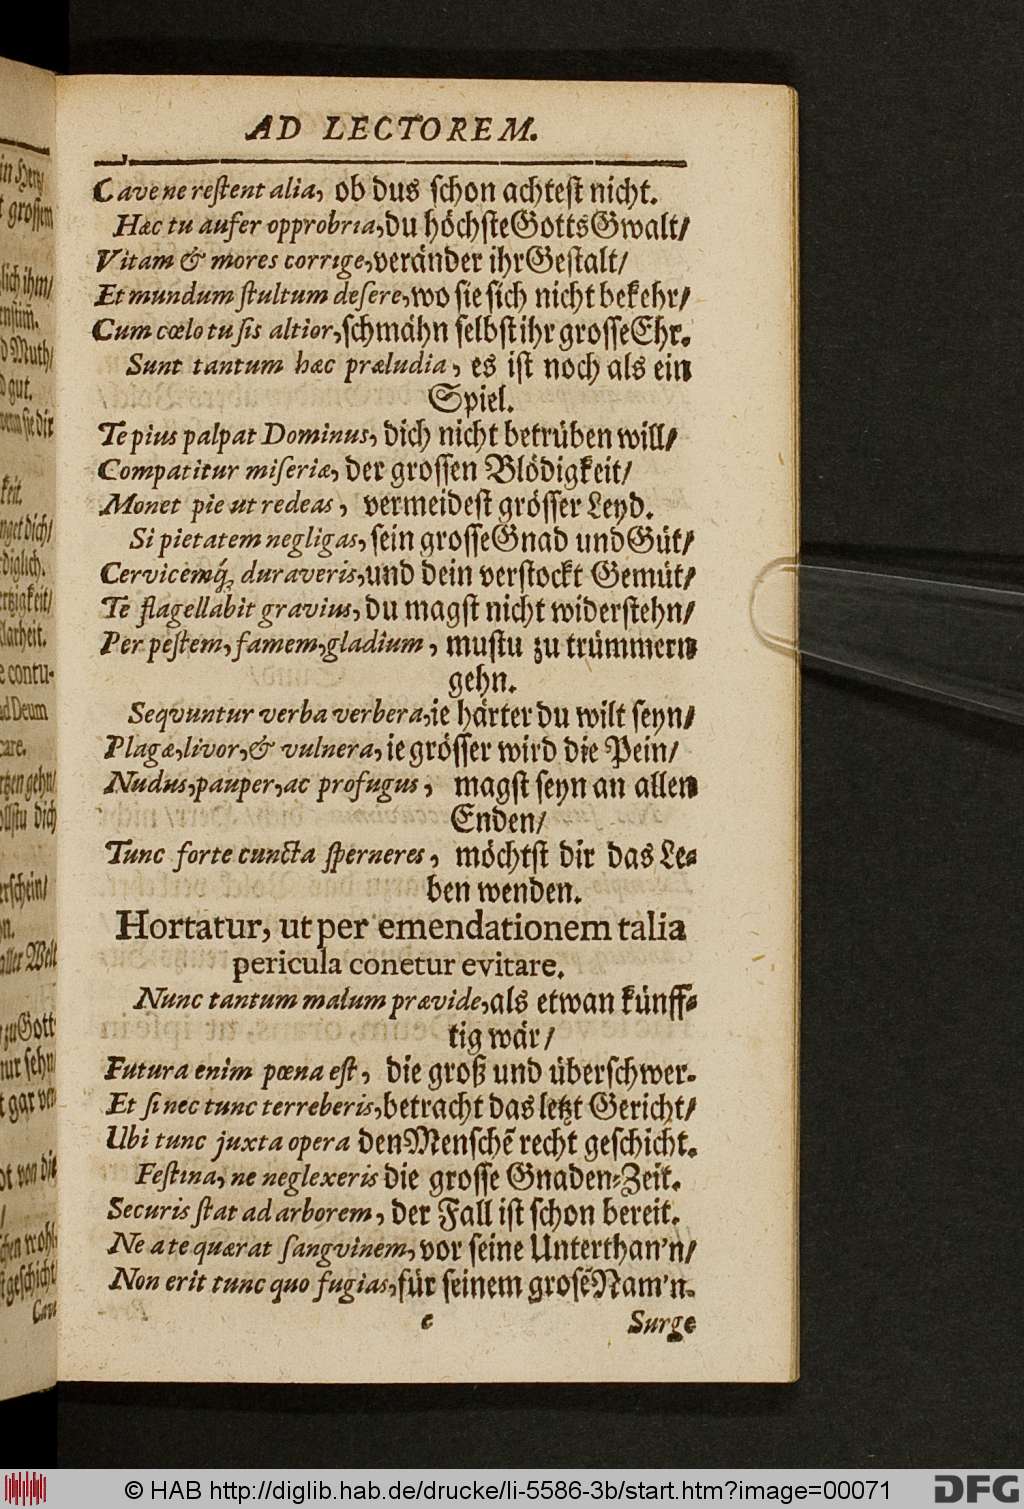 AD LECTOREM.
Cave ne reſtent alia, ob dus ſchon achteſt nicht.
Hæc tu aufer opprobria, du höchſte Gotts Gwalt/
Vitam & mores corrige, veränder ihr Geſtalt/
Et mundum ſtultum deſere, wo sie ſich nicht bekehr/
Cum cœlo tu ſis altior, ſchmähn ſelbſt ihr groſſe Ehr.
Sunt tantum hæc præludia, es iſt noch als ein
Spiel.
Te pius palpat Dominus, dich nicht betrüben will/
Compatitur miſeriæ, der groſſen Blödigkeit/
Monet pie ut redeas, vermeideſt gröſſer Leyd.
Si pietatem negligas, ſein groſſe Gnad und Güt/
Cervicemq́; duraveris, und dein verſtockt Gemüt/
Te flagellabit gravius, du magſt nicht widerſtehn/
Per peſtem, famem, gladium, muſtu zu trümmern
gehn.
Seqvuntur verba verbera, ie härter du wilt ſeyn/
Plagæ, livor, & vulnera, ie gröſſer wird die Pein/
Nudus, pauper, ac profugus, magſt ſeyn an allen
Enden/
Tunc forte cuncta ſperneres, möchtſt dir das Le⸗
ben wenden.
Hortatur, ut per emendationem talia
pericula conetur evitare.
Nunc tantum malum prævide, als etwan künff⸗
tig wär/
Futura enim pœna eſt, die groß und überſchwer.
Et ſi nec tunc terreberis, betracht das letzt Gericht/
Ubi tunc juxta opera den Menſchẽ recht geſchicht.
Feſtina, ne neglexeris die groſſe Gnaden⸗Zeit.
Securis ſtat ad arborem, der Fall iſt ſchon bereit.
Ne a te quærat ſangvinem, vor ſeine Unterthan'n/
Non erit tunc quo fugias, für ſeinem groſẽ Nam'n.
e Surge
in Hertz/
t groſſem
lich ihm/
enſtim̃.
d Muth/
d gut.
wenn ſie dir
keit.
nget dich/
diglich.
ertzigkeit/
larheit.
e contu-
ad Deum
care.
rtzen gehn/
ollſtu dich
erſchein/
aller Welt
zu Gott
nur ſehn/
t gar ver⸗
von die
/
chen wohl⸗
ſt geſchicht
Cave
© HAB http://diglib.hab.de/drucke/li-5586-3b/start.htm?image=00071
DFG